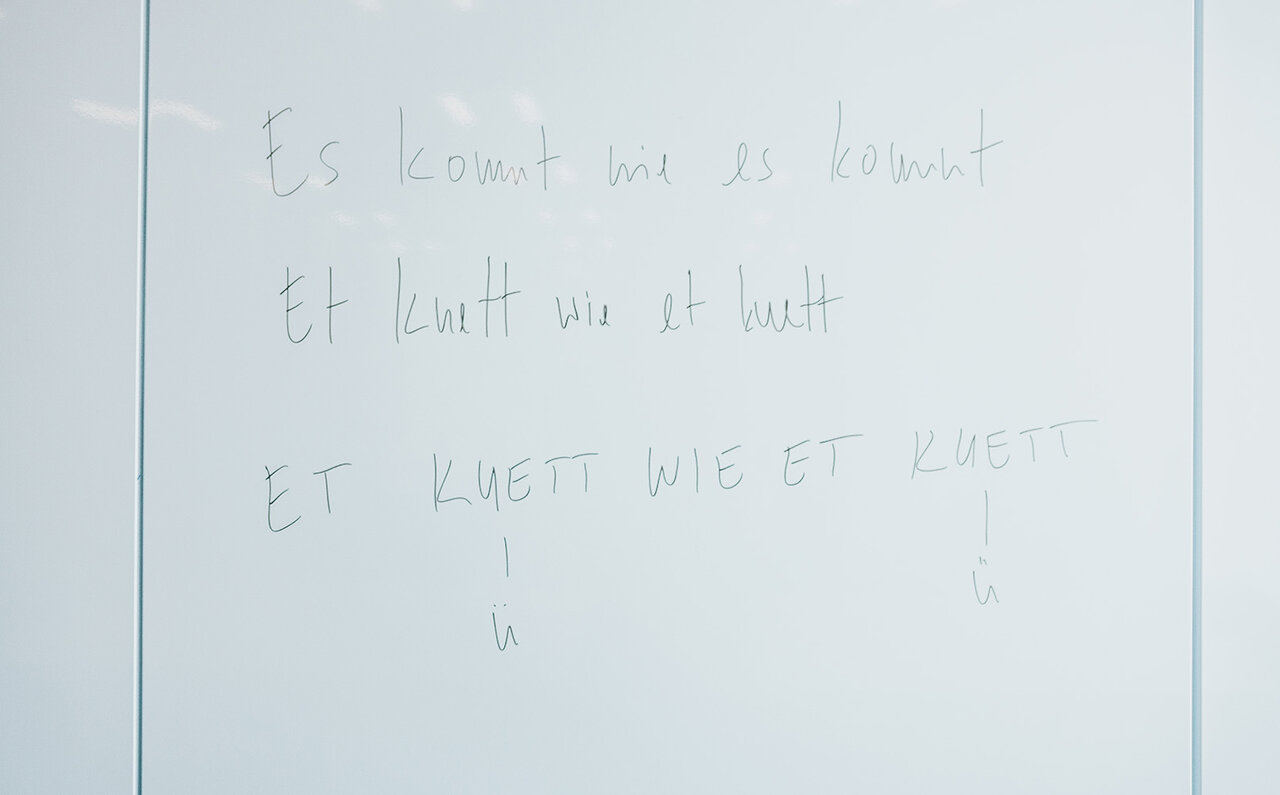 Es kommt wie es kommt
Et kuett wie et kuett
ET KUETT WIE ET KUETT
ü ü